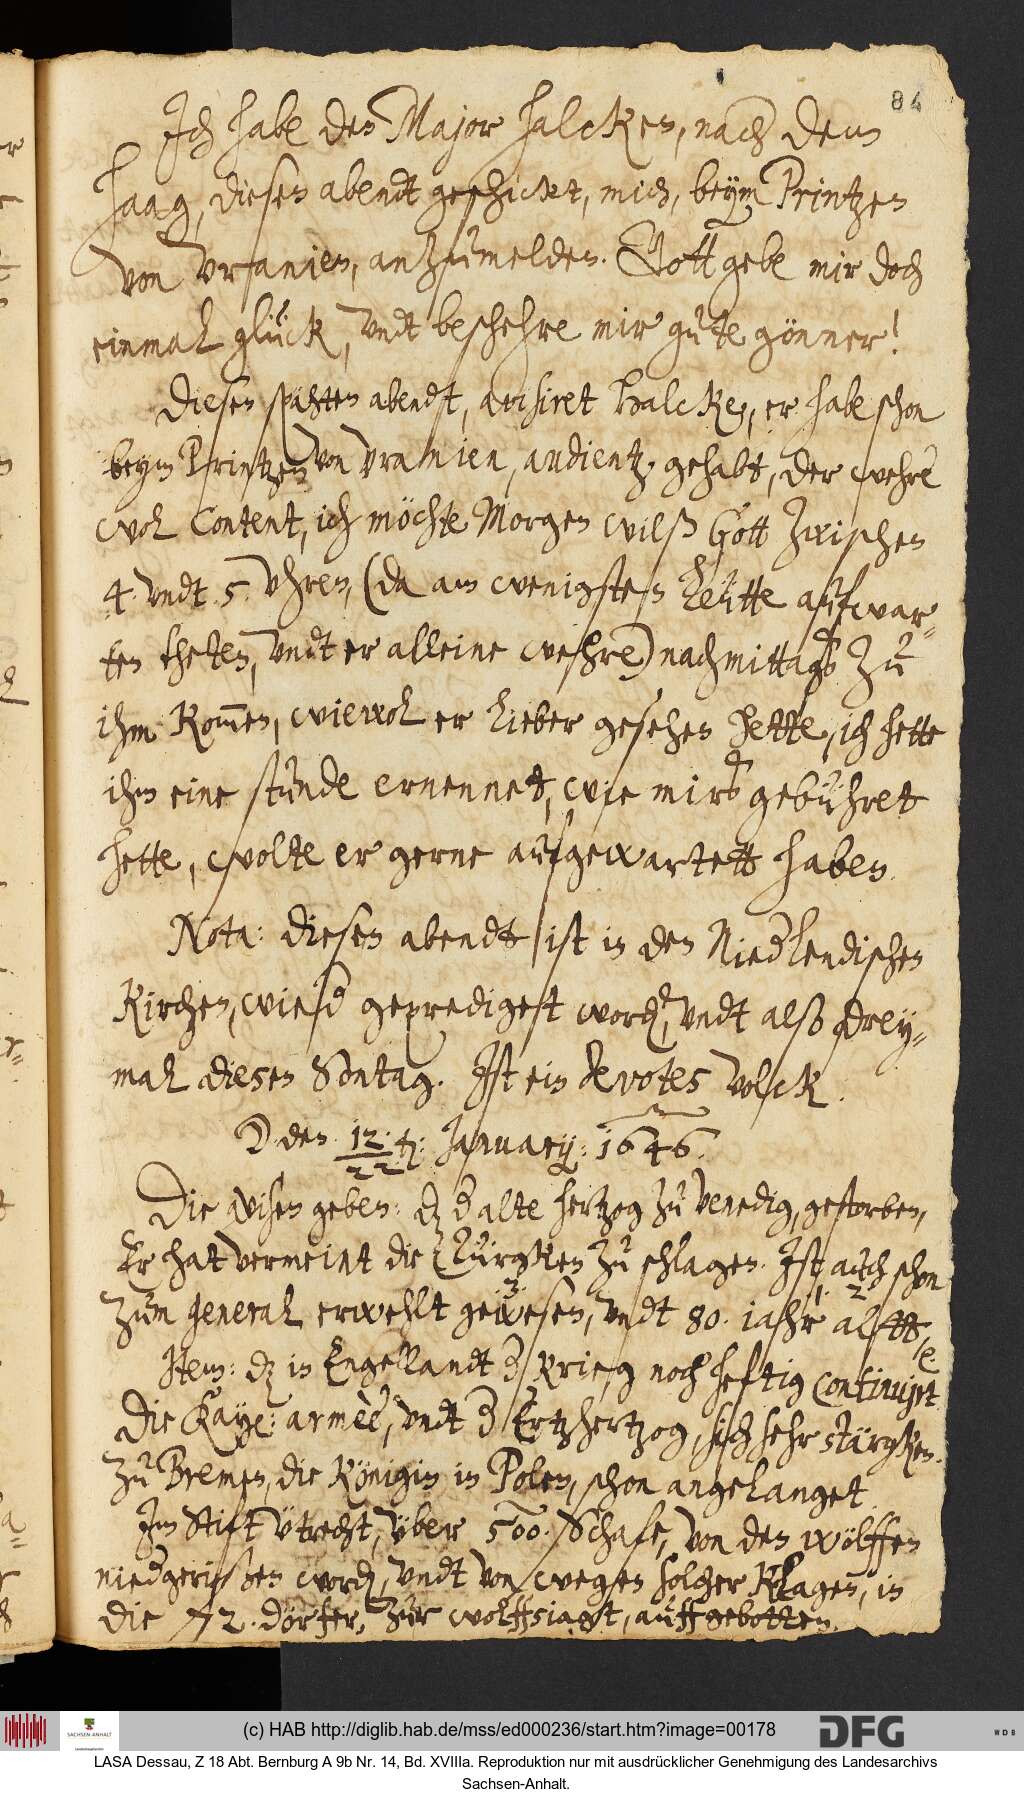 84
Ich habe den Major Halcken, nach dem
Haag, diesen abendt geschicket, mich, beym Printzen
von Vranien, anzumelden. Gott gebe mir doch
einmal glück, vndt beschehre mir gute gönner!
Diesen spähten abendt, avisiret Halcke, er habe schon
beym Printzen von Vranien, audientz, gehabt, der wehre
wol Content, ich möchte Morgen wilß Gott zwischen
4. vndt 5. Vhren, (da am wenigsten leütte aufwar-
ten theten, vndt er alleine wehre) nachmittags zu
ihm kommen, wiewol er lieber gesehen hette, ich hette
ihm eine stunde ernennet, wie mirs gebühret
hette, wolte er gerne aufgewartett haben.
Nota: diesen abendt ist in den Niedlendischen
Kirchen, wied gepredigett word, vndt also drey-
mal diesen Sontag. Ist ein devotes volck.
den 12. / 22. January: 1646.
Die avisen geben: dz d alte hertzog zu Venedig, gestorben,
Er hat vermeint die Türgken zu schlagen. Ist auch schon
zum general erwehlt gewesen, vndt 80. iahr altt,
Item: dz in Engellandt d Krieg noch heftig continuiret
Die Kaye: armèe, vndt d Ertzhertzog, sich sehr stärgken.
Zu Bremen, die Königin in Polen, schon angelanget.
Im Stift Vtrecht, über 500. Schafe, von den wölffen
niedgerissen word, vndt von wegen solcher Klagen, in
die 72. dörfer, zur wolffsiagt, auffgebotten.
(c) HAB http://diglib.hab.de/mss/ed000236/start.htm?image=00178
SACHSEN-ANHALT
DFG
WDB
LASA Dessau, Z 18 Abt. Bernburg A 9b Nr. 14, Bd. XVIIIa. Reproduktion nur mit ausdrücklicher Genehmigung des Landesarchivs
Sachsen-Anhalt.